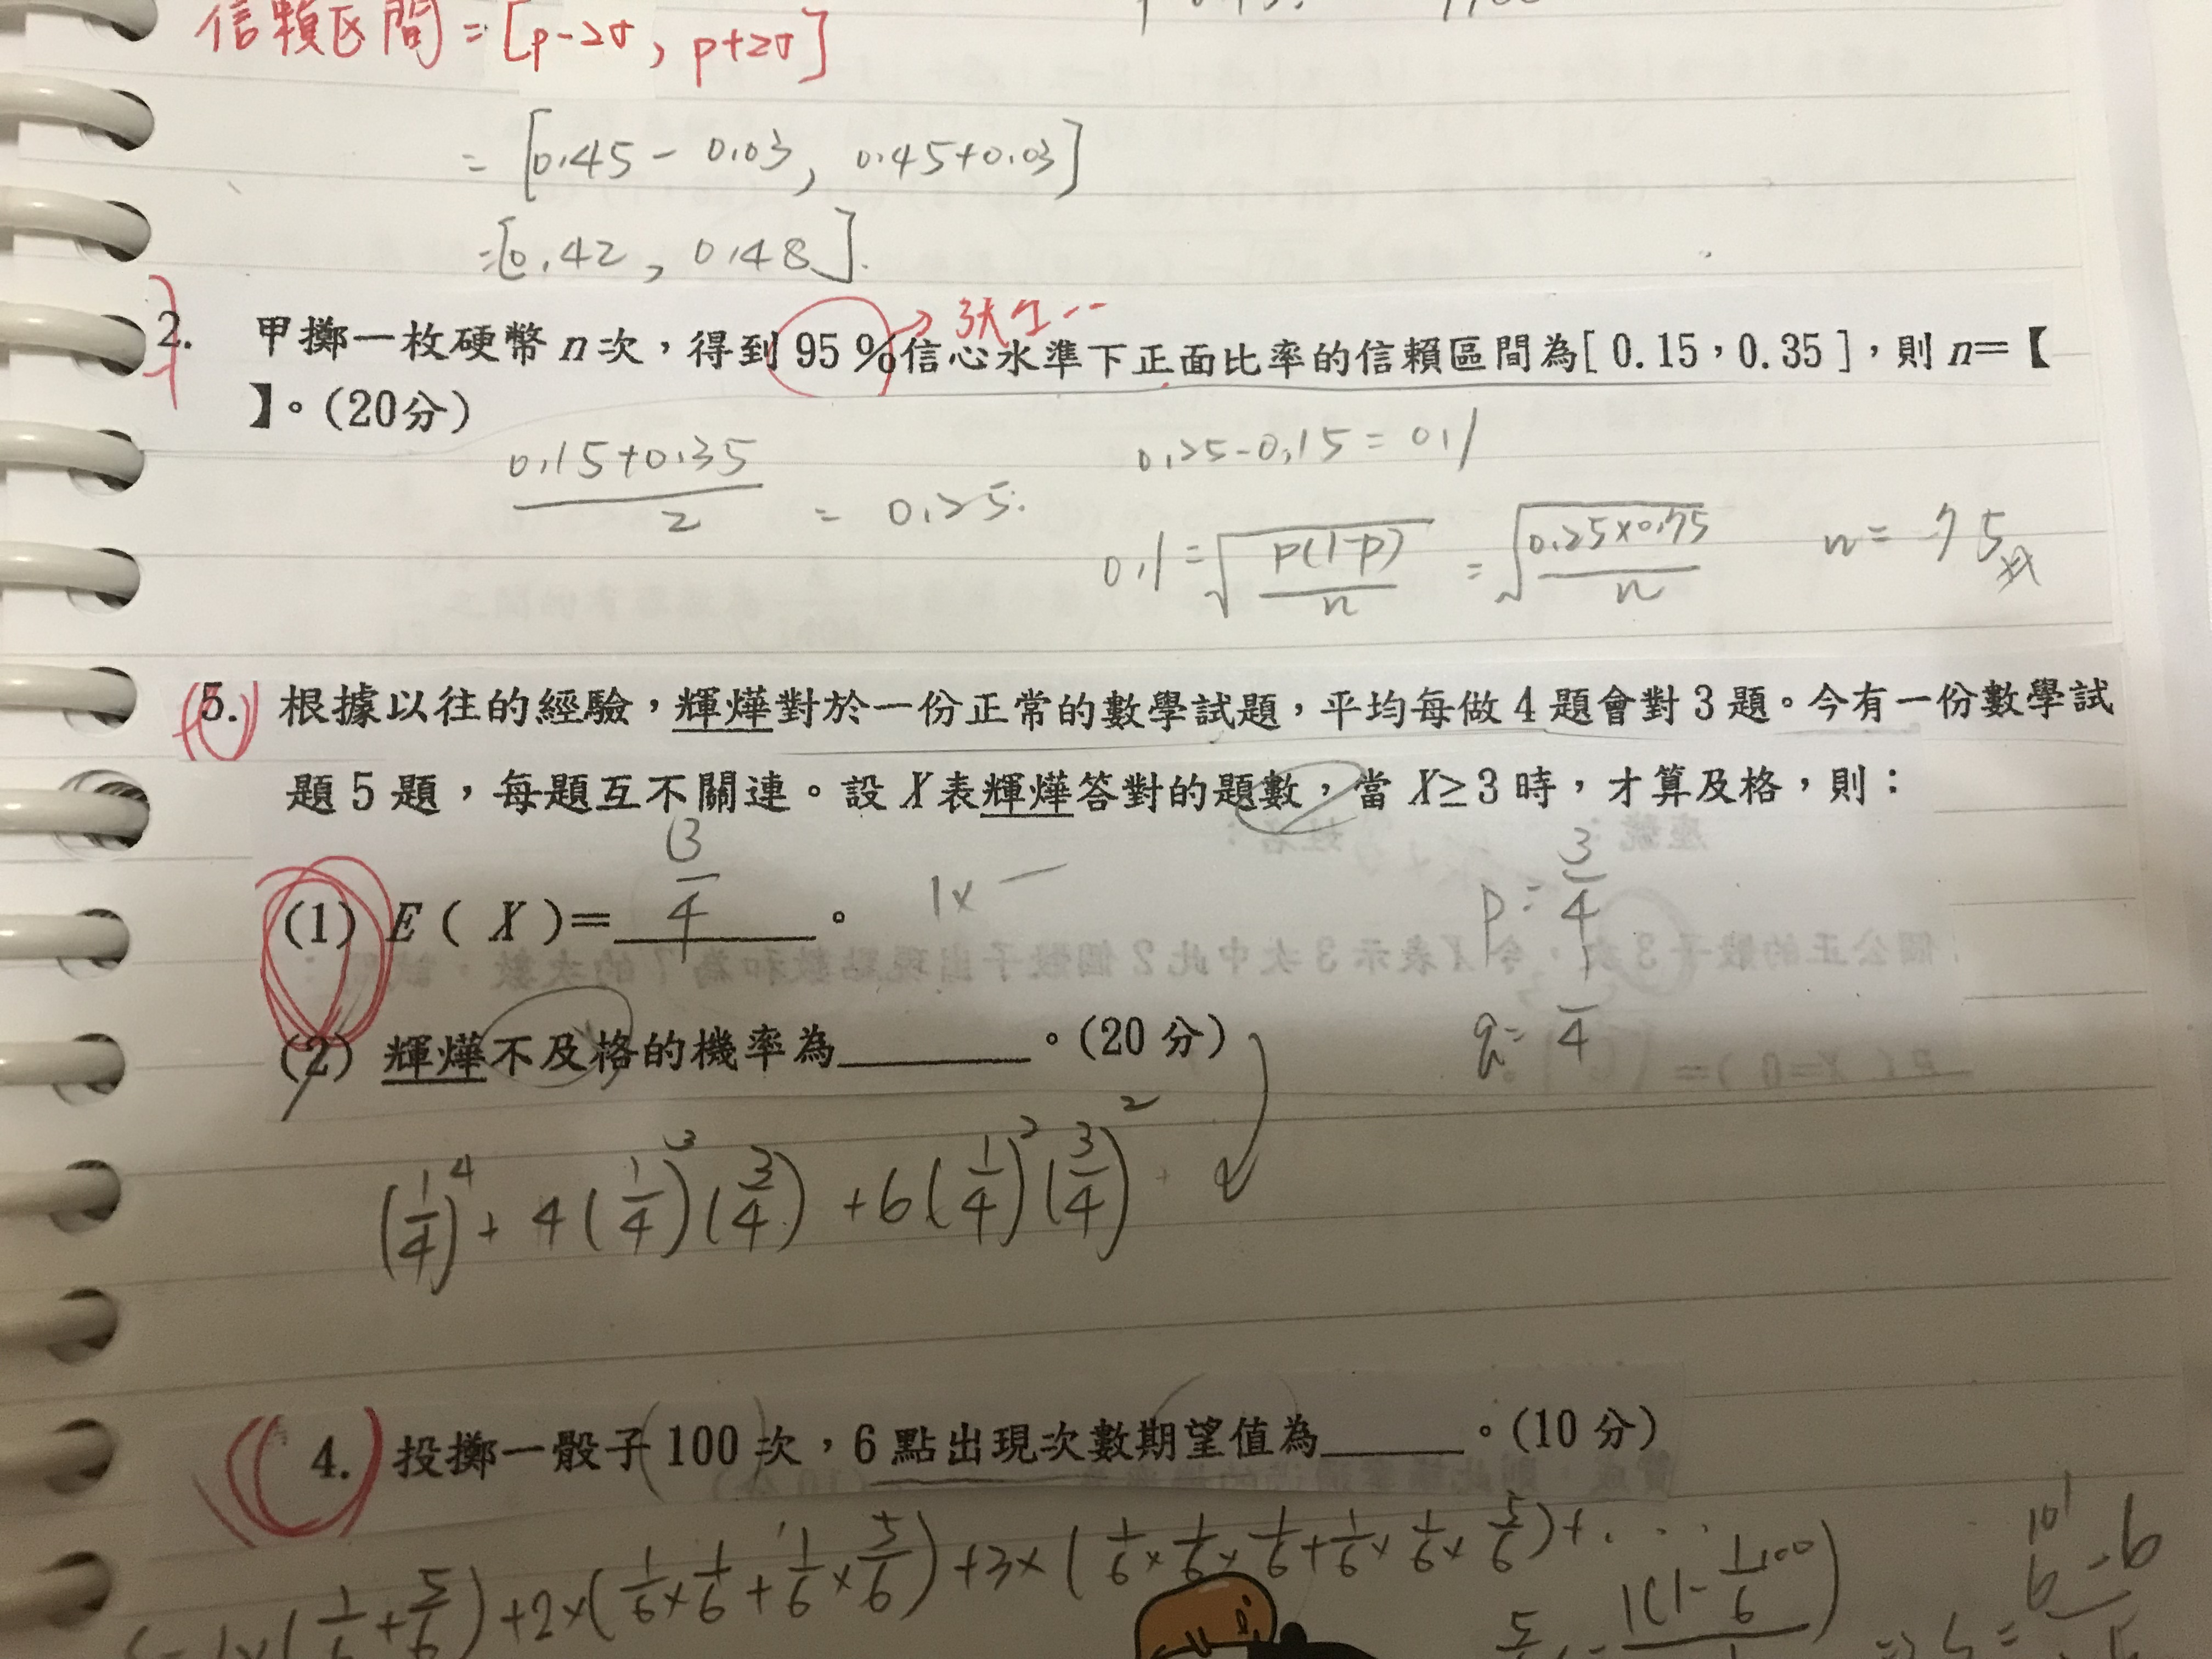 信賴区間 = [p-2σ, p+2σ]
= [0.45 - 0.03, 0.45+0.03]
=[0.42, 0.48].
2. 甲擲一枚硬幣 n 次，得到 95 % 信心水準下正面比率的信賴區間為[ 0.15，0.35 ]，則 n=【
】。(20分)
0.15+0.35 / 2 = 0.25.
0.25-0.15 = 0.1
0.1 = √(p(1-p)/n) = √(0.25×0.75/n) n = 75
(5.) 根據以往的經驗，輝燁對於一份正常的數學試題，平均每做 4 題會對 3 題。今有一份數學試
題 5 題，每題互不關連。設 X 表輝燁答對的題數，當 X≥3 時，才算及格，則：
(1) E ( X )= 3/4 。 1×
p = 3/4
(2) 輝燁不及格的機率為 。(20 分)
q = 1/4
(1/4)^4 + 4(1/4)^3(3/4) + 6(1/4)^2(3/4)^2
4. 投擲一骰子 100 次，6 點出現次數期望值為 。(10 分)
+2×(1/6×1/6+1/6×5/6)+3×(1/6×1/6×1/6+1/6×1/6×5/6)+....